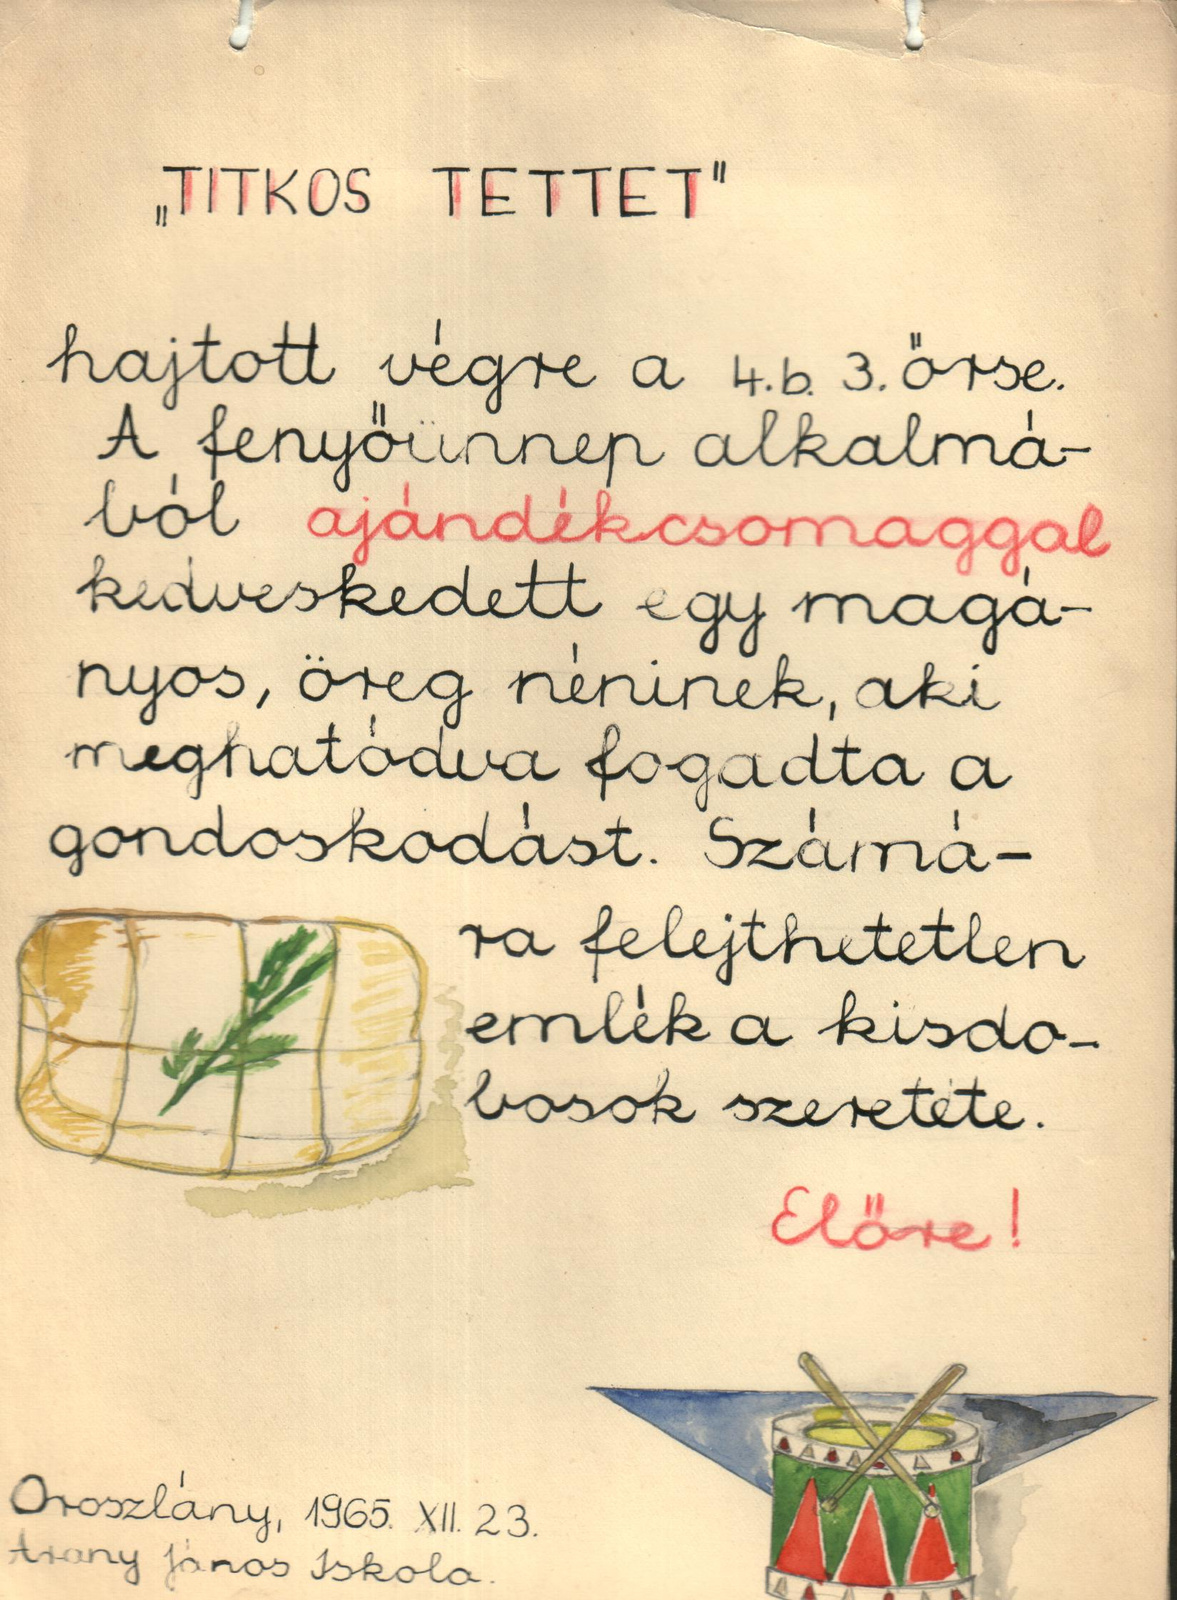 „TITKOS TETTET"
hajtott végre a 4.b. 3. őrse.
A fenyőünnep alkalmá-
ból ajándékcsomaggal
kedveskedett egy magá-
nyos, öreg néninek, aki
meghatódva fogadta a
gondoskodást. Számá-
ra felejthetetlen
emlék a kisdo-
bosok szeretete.
Előre!
Oroszlány, 1965. XII. 23.
Arany János Iskola.